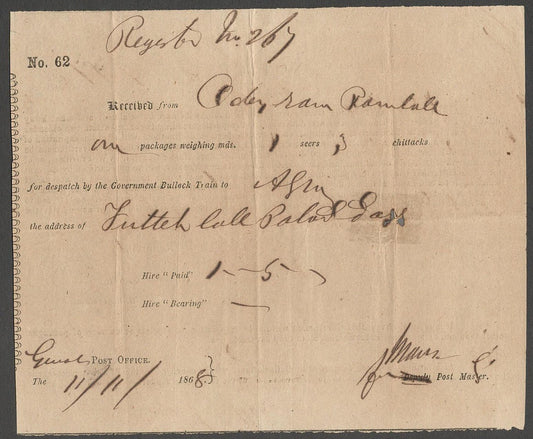 Register No. 267
No. 62
Received from Odey ram Ramlall
one packages weighing mds. 1 seers 3 chittacks
for despatch by the Government Bullock Train to Agra
the address of Futteh lall Dass
Hire "Paid" 1-5-
Hire "Bearing" —
POST OFFICE.
The 11/11/ 1868
for Deputy Post Master.